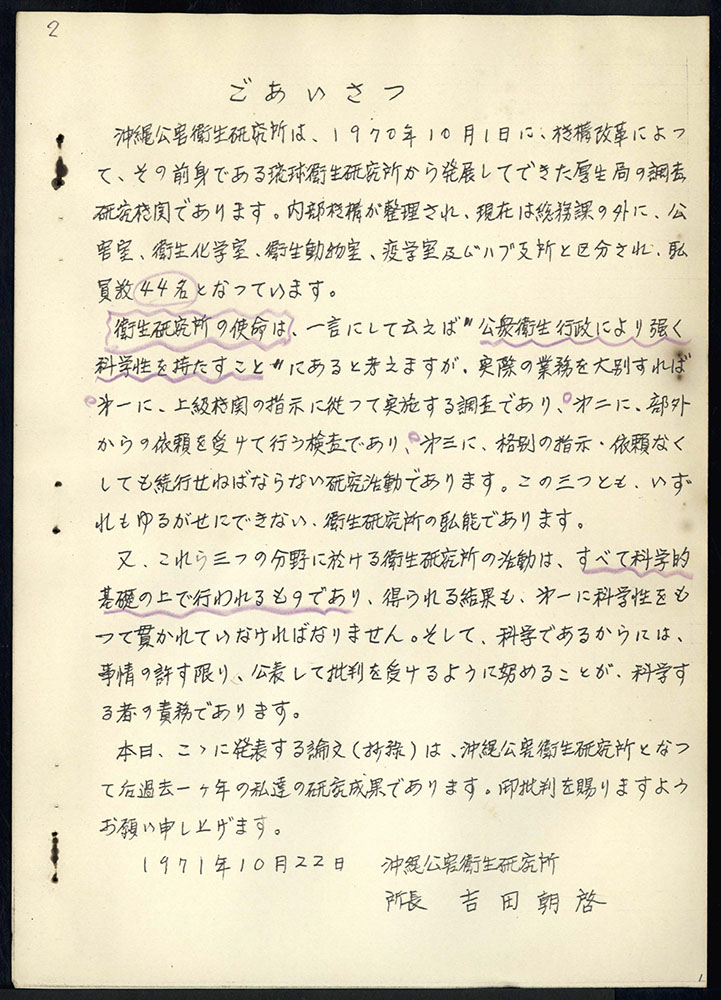 2
ごあいさつ
沖縄公害衛生研究所は、1970年10月1日に、機構改革によっ
て、その前身である琉球衛生研究所から発展してできた厚生局の調査
研究機関であります。内部機構が整理され、現在は総務課の外に、公
害室、衛生化学室、衛生動物室、疫学室及びハブ支所と区分され、職
員数44名となつています。
衛生研究所の使命は、一言にして云えば〃公衆衛生行政により強く
科学性を持たすこと〃にあると考えますが、実際の業務を大別すれば
第一に、上級機関の指示に従つて実施する調査であり、第二に、部外
からの依頼を受けて行う検査であり、第三に、格別の指示・依頼なく
しても続行せねばならない研究活動であります。この三つとも、いず
れもゆるがせにできない、衛生研究所の職能であります。
又、これら三つの分野に於ける衛生研究所の活動は、すべて科学的
基礎の上で行われるものであり、得られる結果も、第一に科学性をも
つて貫かれていなければなりません。そして、科学であるからには、
事情の許す限り、公表して批判を受けるように努めることが、科学す
る者の責務であります。
本日、こゝに発表する論文(抄録)は、沖縄公害衛生研究所となつ
て后過去一ヶ年の私達の研究成果であります。御批判を賜りますよう
お願い申し上げます。
1971年10月22日 沖縄公害衛生研究所
所長 吉田朝啓
1